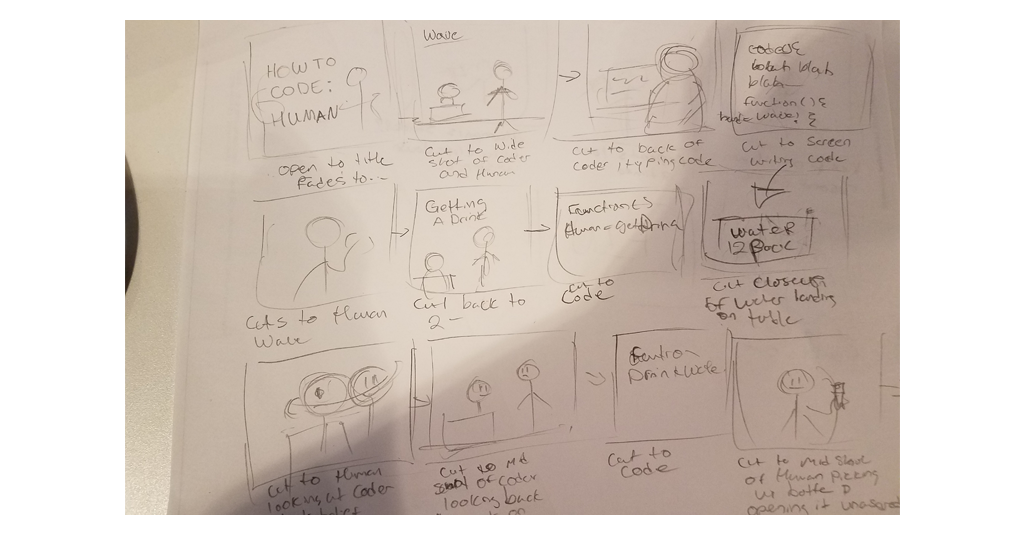 HOW TO
CODE:
HUMAN
open to title
fades to...
Wave
Cut to wide
shot of coder
and Human
cut to back of
coder, typing code
code {
blah blah
blah
function() {
wave
cut to screen
writing code
Cuts to Human
Wave
Getting
A Drink
Cut back to
2 -
Function()
Human = get Drink
cut to
Code
WATER
12 PACK
Cut closeup
of water landing
on table
cut to Human
looking at Coder
Cut to Mid
shot of coder
looking back
Drink Wate
Cut to
Code
Cut to Mid Shot
of Human Picking
up bottle
opening it